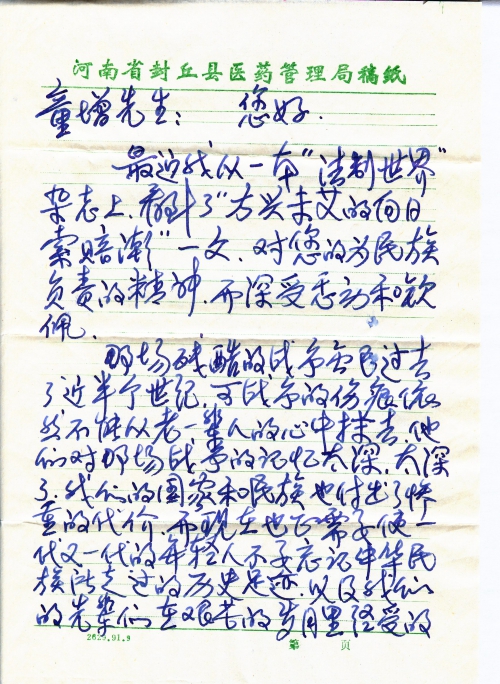 河南省封丘县医药管理局稿纸
童增先生： 您好.
最近我从一本“法制世界”
杂志上.看到了“方兴未艾的向日
索赔潮”一文.对您的为民族
负责的精神.而深受感动和钦
佩.
那场残酷的战争虽已过去
了近半个世纪.可战争的伤痕依
然不能从老一辈人的心中抹去.他
们对那场战争的记忆太深.太深
了.我们的国家和民族也付出了惨
重的代价.而现在也正需要使一
代又一代的年轻人不要忘记中华民
族所走过的历史足迹.以及我们
的先辈们在艰苦的岁月里经受的
2029.91.9 第 页